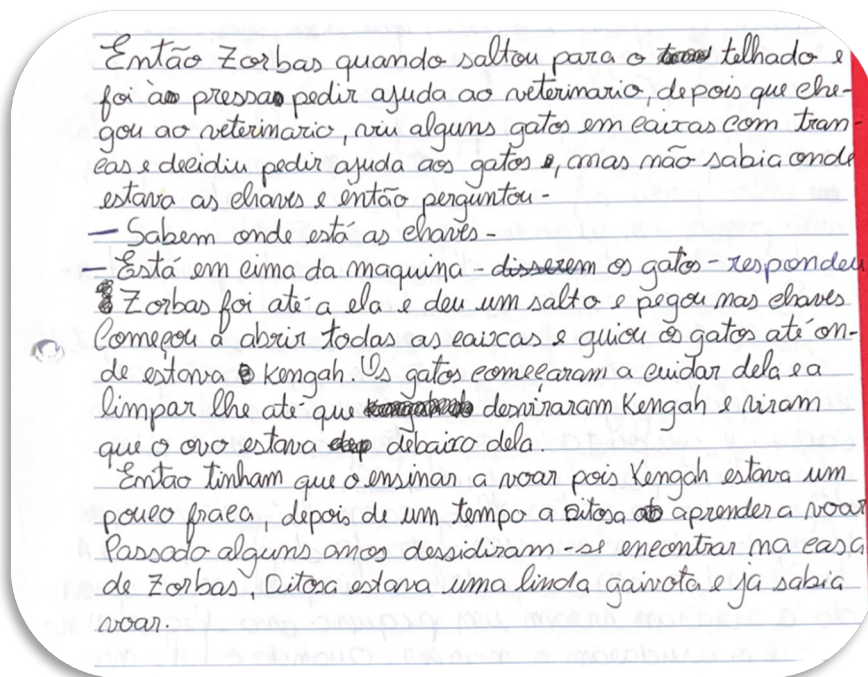 Então Zorbas quando saltou para o telhado e
foi às pressas pedir ajuda ao veterinario, depois que che-
gou ao veterinario, viu alguns gatos em caixas com tran-
cas e decidiu pedir ajuda aos gatos, mas não sabia onde
estava as chaves e então perguntou-
- Sabem onde está as chaves-
- Está em cima da maquina - disserem os gatos - respondeu
Zorbas foi até a ela e deu um salto e pegou nas chaves
Começou a abrir todas as caixas e guiou os gatos até on-
de estava Kengah. Os gatos começaram a cuidar dela e a
limpar lhe até que desviraram Kengah e viram
que o ovo estava debaixo dela.
Entao tinham que o ensinar a voar pois Kengah estava um
pouco fraca, depois de um tempo a Ditosa aprender a voar
Passado alguns anos dessidiram-se encontrar na casa
de Zorbas, Ditosa estava uma linda gaivota e ja sabia
voar.